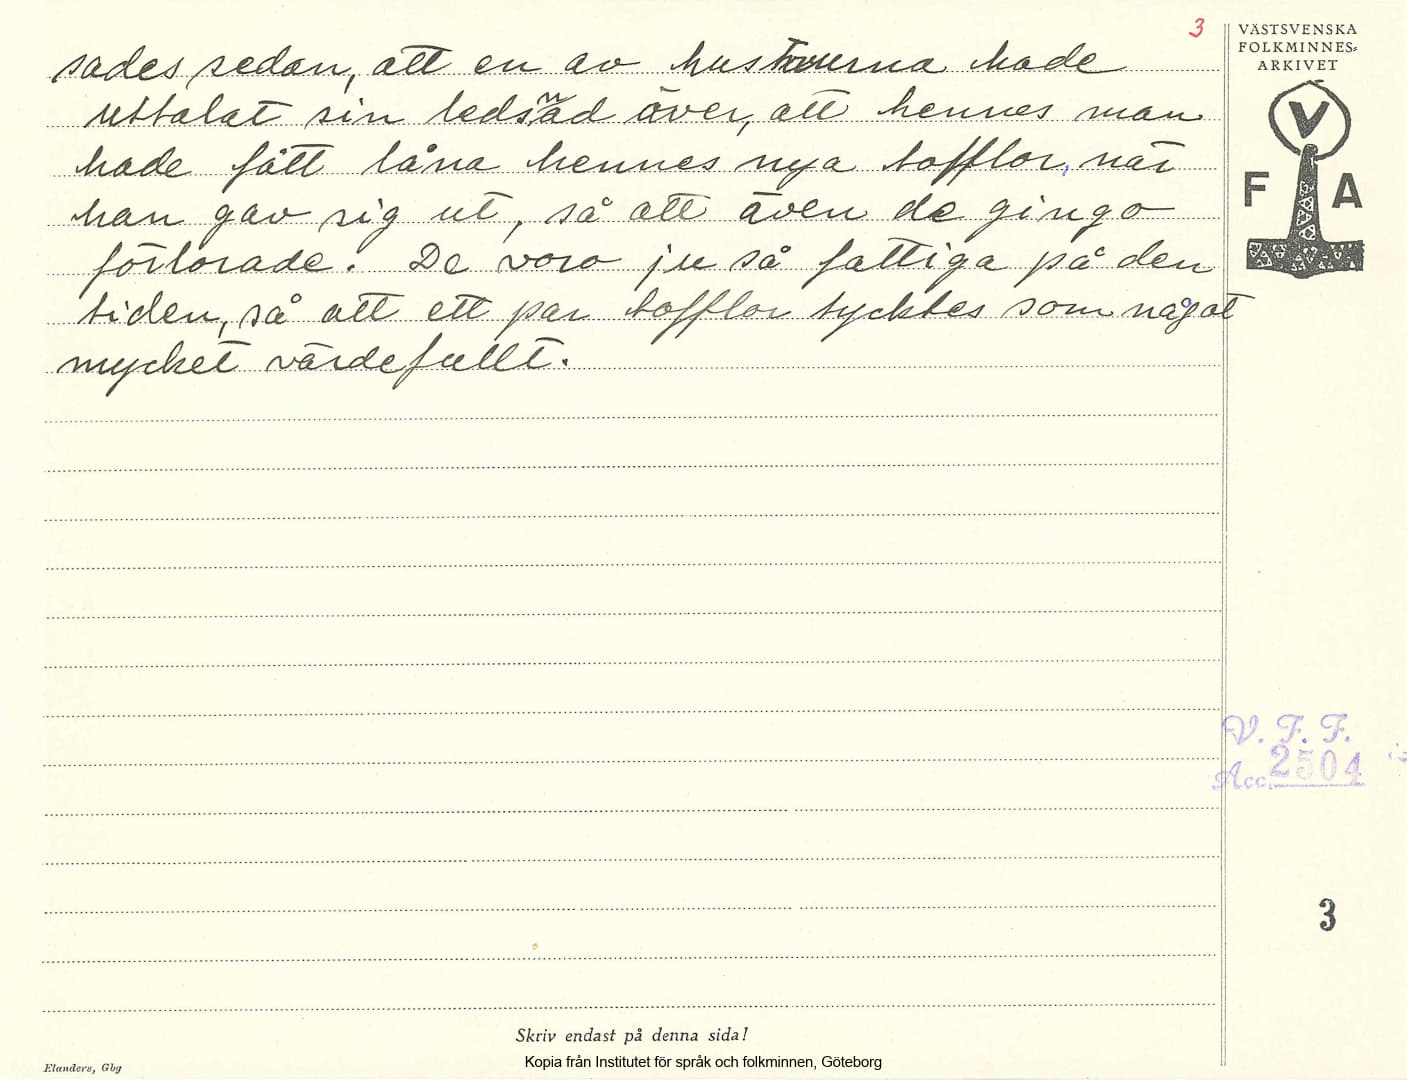 3
VÄSTSVENSKA
FOLKMINNES-
ARKIVET
V
F A
sades sedan, att en av hustruerna hade
uttalat sin ledsnad över, att hennes man
hade fått låna hennes nya tofflor, när
han gav sig ut, så att även de gingo
förlorade. De voro ju så fattiga på den
tiden, så att ett par tofflor tycktes som något
mycket värdefullt.
V. F. F.
Acc. 2504
3
Skriv endast på denna sida!
Elanders, Gbg
Kopia från Institutet för språk och folkminnen, Göteborg